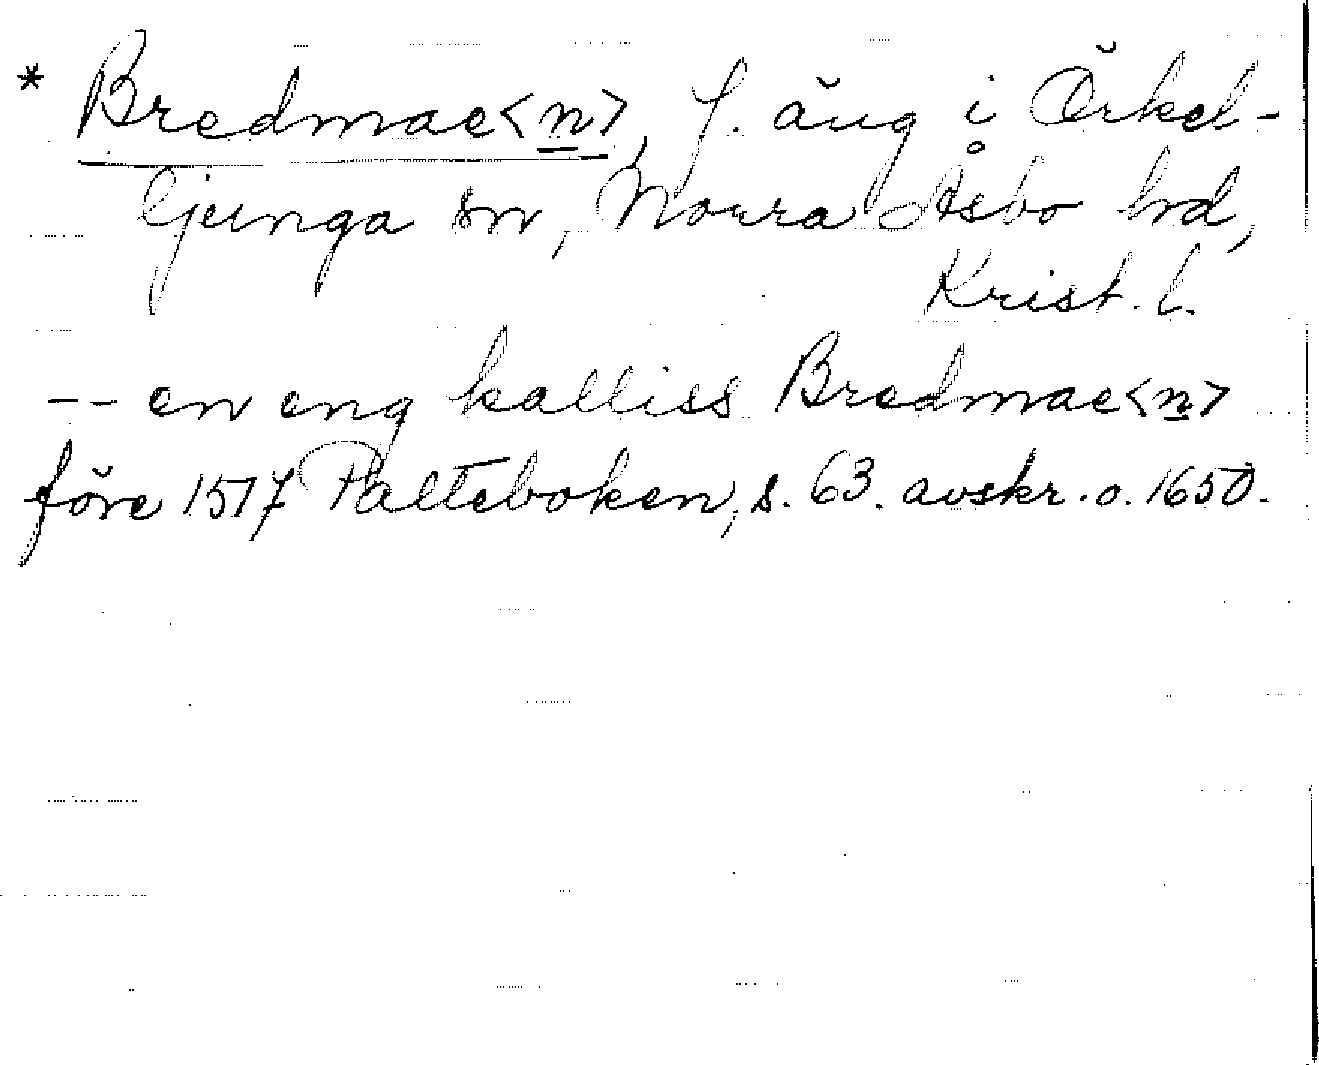 * Bredmae<n>, f. äng i Örkel-
ljunga sn, Norra Åsbo hd,
Krist. l.
-- en eng kalliss Bredmae<n>
före 1517 Palteboken, s. 63. avskr. o. 1650.